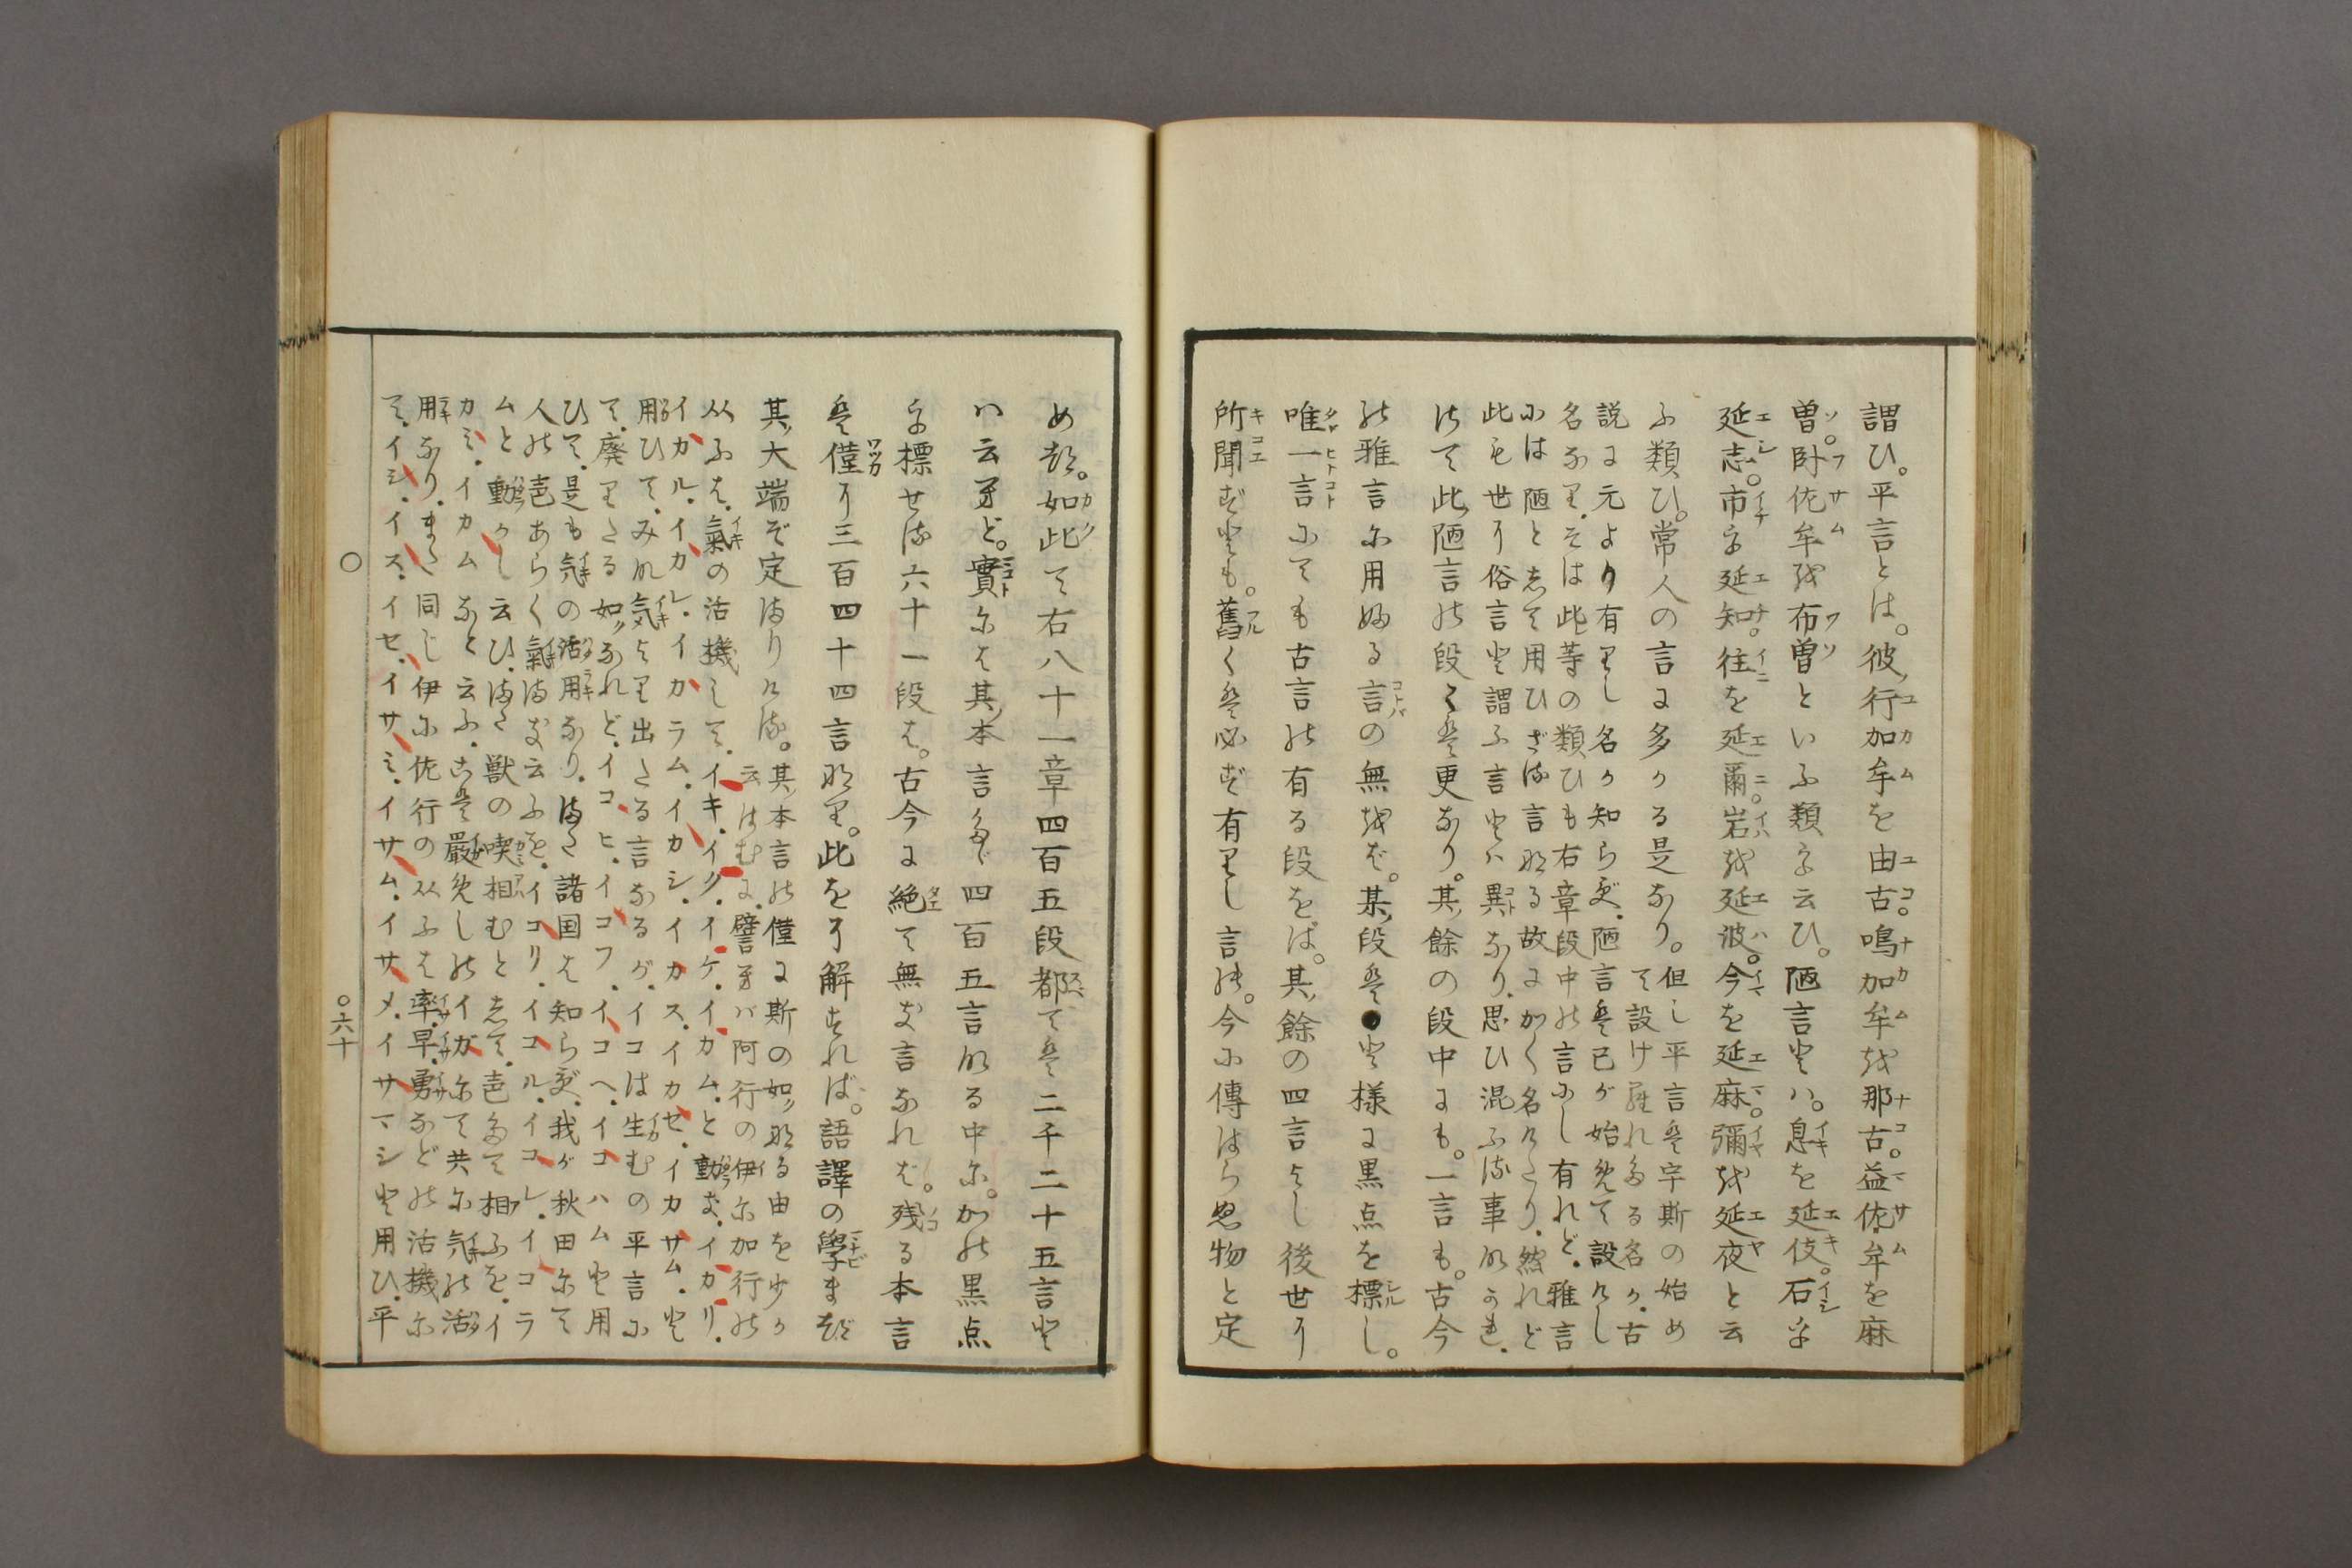 謂ひ。平言とは。彼行加牟を由古。鳴加牟を那古。益佐牟を麻
曽。臥佐牟を布曽といふ類を云ひ。陋言とハ。息を延伎。石を
延志。市を延知。往を延爾。岩を延波。今を延麻。彌を延夜と云
ふ類ひ。常人の言に多かる是なり。但し平言は宇斯の始め
て設け羅れたる名か。古
説に元より有りし名か知らず。陋言は己が始めて設けし
名なり。そは此等の類ひも右章段中の言にし有れど。雅言
には陋と志て用ひざる言なる故にかく名けたり。然れど
此も世に俗言と謂ふ言とハ異なり。思ひ混ふる事なかれ。
はて此陋言の段々は更なり。其餘の段中にも。一言も。古今
の雅言に用ゐる言の無をば。某段は●と様に黒点を標し。
唯一言にても古言の有る段をば。其餘の四言よし後世に
所聞ずとも。舊くは必ず有りし言の。今に傳はらぬ物と定
め都。如此て右八十一章四百五段都ては二千二十五言と
ハ云へど。實には其本言たゞ四百五言なる中に。かの黒点
を標せる六十一段は。古今に絶て無き言なれば。残る本言
は僅に三百四十四言なり。此をよ解すれば。語譯の學まず
其大端ぞ定まりける。其本言の僅に斯の如なる由を少か
云はむに。譬へバ阿行の伊に加行の
从ふは。氣の活機して。イキ。イク。イケ。イカム。と動き。イカリ。
イカル。イカレ。イカラム。イカシ。イカス。イカセ。イカサム。と
用ひて。みな気より出たる言なるが。イコは生むの平言に
て。廃りたる如なれど。イコヒ。イコフ。イコヘ。イコハムと用
ひて。是も気の活用なり。また諸国は知らず。我が秋田にて
人の壱あらく氣まき云ふを。イコリ。イコル。イコレ。イコラ
ムと動かし云ひ。また獣の喫相むと志て。壱たて相ふを。イ
カミ。イカムなと云ふ。こは嚴めしのイガにて共に気の活
用なり。また同じ伊に佐行の从ふは率。早。勇などの活機に
て。イシ。イス。イセ。イサミ。イサム。イサメ。イサマシと用ひ。平
〇
〇六十